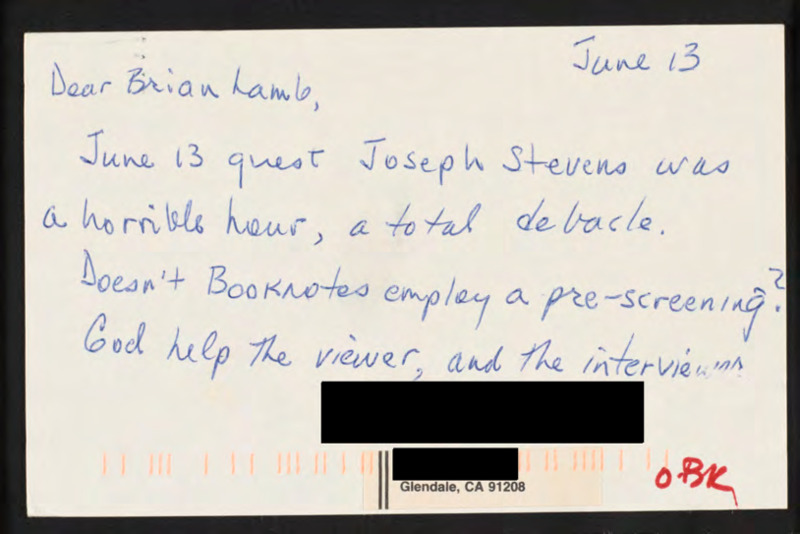 June 13
Dear Brian Lamb,
June 13 guest Joseph Stevens was
a horrible hour, a total debacle.
Doesn't Booknotes employ a pre-screening?
God help the viewer, and the
Glendale, CA 91208
OBK